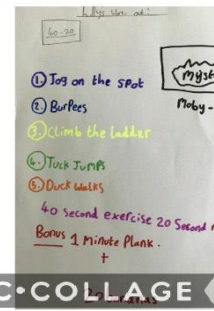 40-20
① Jog on the spot
② Burpees
③ Climb the ladder
④ Tuck Jumps
⑤ Duck walks
40 Second exercise 20 Second
Bonus 1 Minute Plank.
+
Myst
Moby-
C•COLLAGE